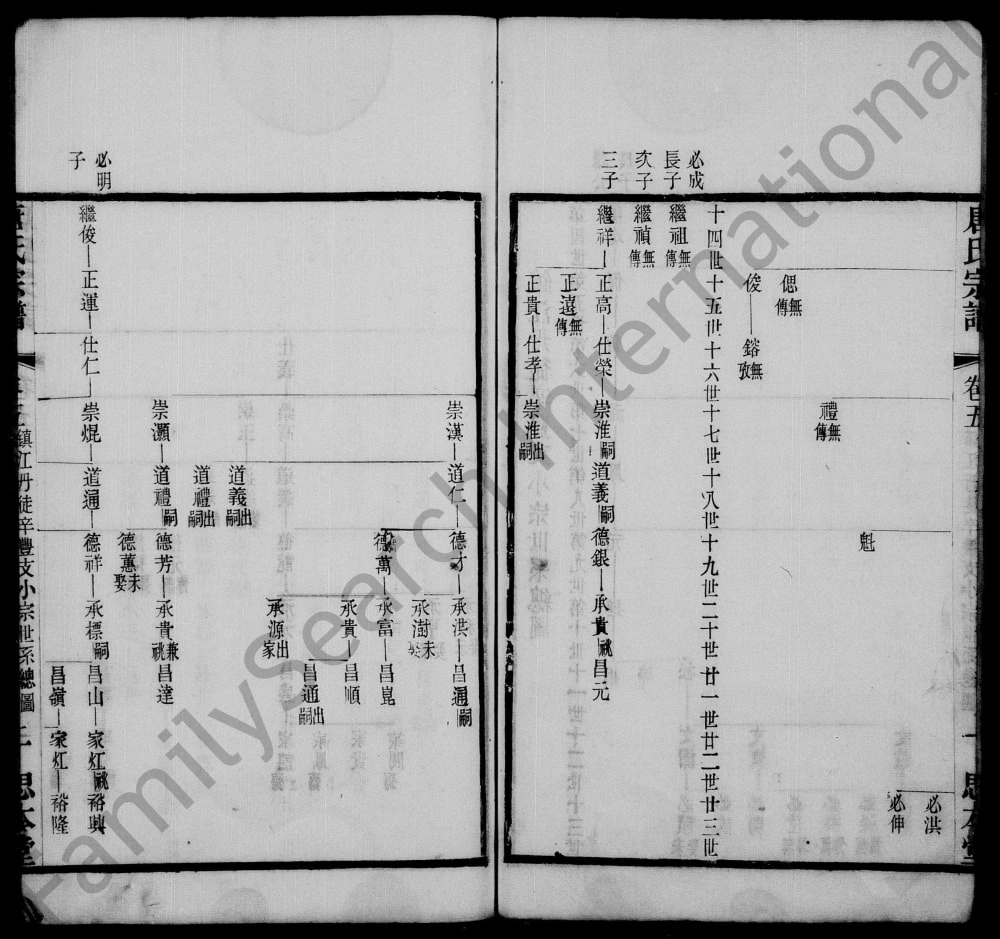 氏宗譜
卷五
思本堂
必洪
必伸
魁
禮無傳
偲無傳
俊—鎔無孜
十四世十五世十六世十七世十八世十九世二十世廿一世廿二世廿三世
必成
長子
繼祖無傳
次子
繼禎無傳
三子
繼祥—正高—仕榮 崇淮嗣道義嗣德銀—承貴祧昌元
正遠無傳
正貴—仕孝—崇淮出嗣
崇漢—道仁—德才—承洪—昌通嗣
承澍未娶
德萬—承富—昌崑
承貴—昌順
昌通出嗣
承源出家
道義出嗣
道禮出嗣
崇灝—道禮嗣德芳—承貴兼祧昌達
德蕙未娶
必明
子
繼俊—正運—仕仁—崇焜—道通—德祥—承標嗣昌山—家灴祧裕興
昌嶺—家灴—裕隆
氏宗譜
鎮江丹徒辛豐支小宗世系總圖
思本堂
FamilySearch International